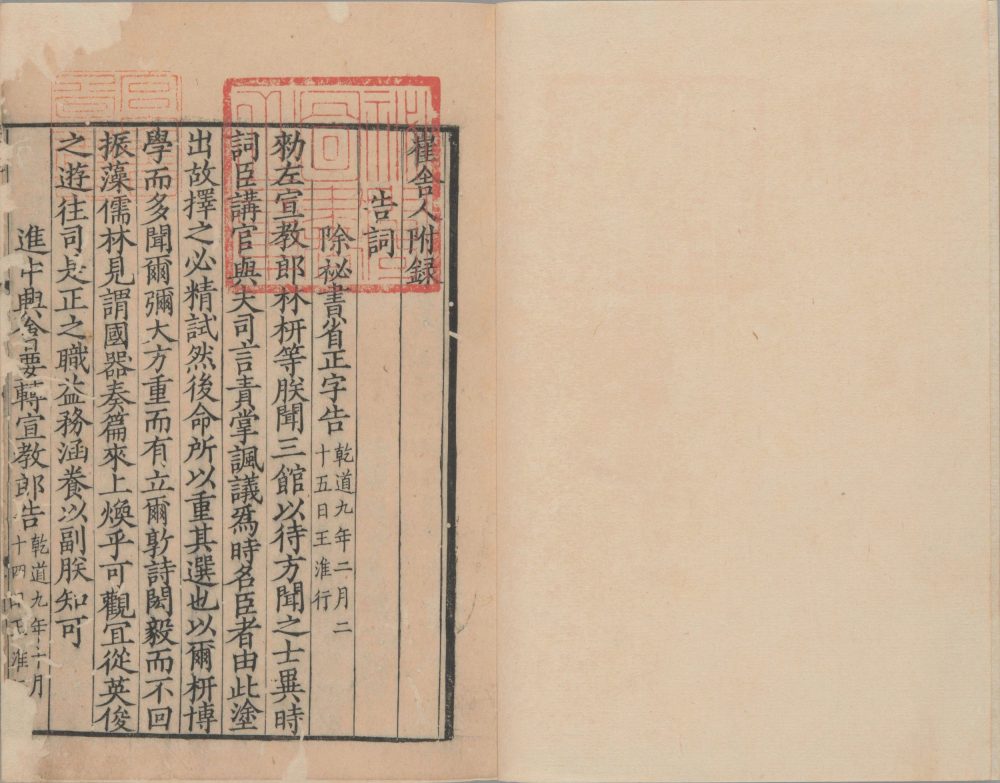 崔舍人附録
告詞
除祕書省正字告 乾道九年二月二
十五日王淮行
勑左宣教郎林枅等朕聞三館以待方聞之士異時
詞臣講官與夫司言責掌諷議爲時名臣者由此塗
出故擇之必精試然後命所以重其選也以爾枅博
學而多聞爾彌大方重而有立爾敦詩閎毅而不回
振藻儒林見謂國器奏篇來上煥乎可觀冝從英俊
之遊往司是正之職益務涵養以副朕知可
進中興會要轉宣教郎告 乾道九年 月
十四日王淮